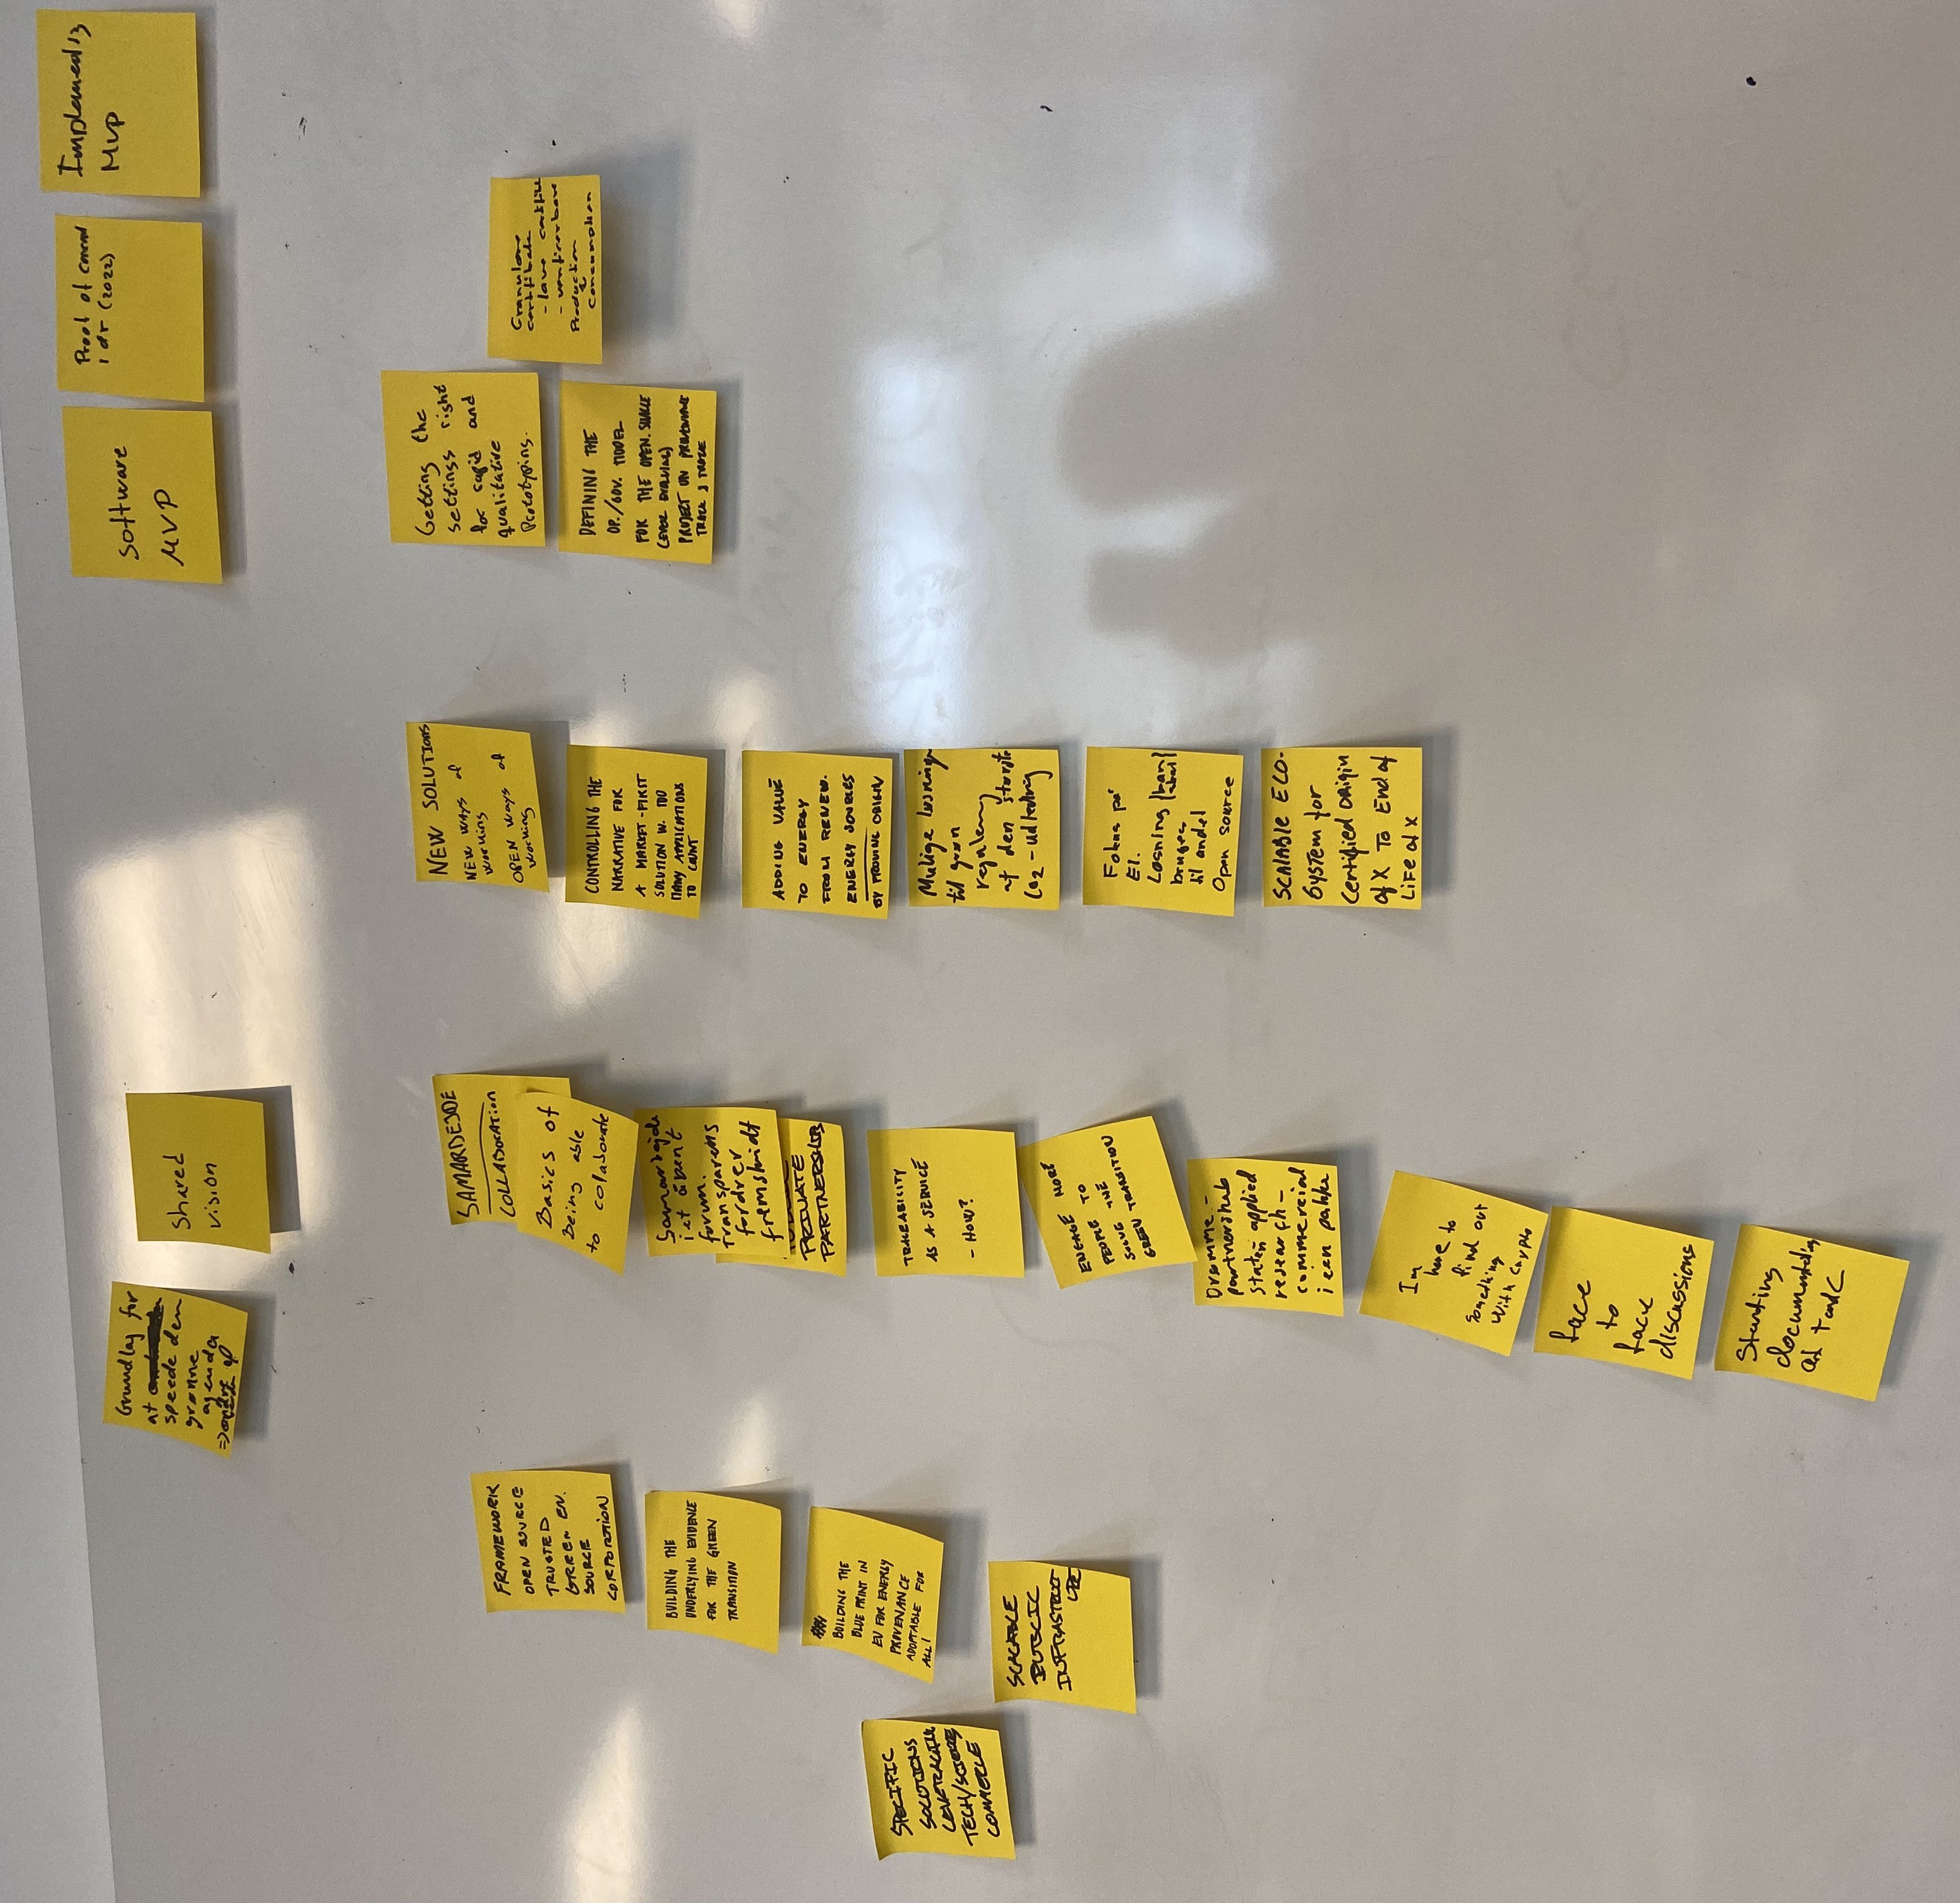 Grundlag for
at
speede den
grønne
agenda
=>
Shared
vision
Software
MVP
Proof of
1 år (2022)
MVP
FRAMEWORK
OPEN SOURCE
TRUSTED
GREEN EN.
SOURCE
CORPORTION
BUILDING THE
UNDERLYING EVIDENCE
FOR THE GREEN
TRANSITION
BUILDING THE
BLUE PRINT IN
EU FOR ENERGY
PROVENANCE
ADOPTABLE FOR
ALL!
SPECIFIC
SOLUTIONS
LEVERAGING
TECH/SCIENCE
COMMERCE
SCALABLE
PUBLIC
INFRASTRUCT
URE
SAMARBEJDE
COLLABORATION
Basics of
Being able
to colaborate
Samarbejde
i et åbent
forum.
Transparens
fordrer
fremskridt
PRIVATE
PARTNERSHIPS
TRACEABILITY
AS A SERVICE
- HOW?
ENGAGE MORE
PEOPLE TO
SOLVE THE
GREEN TRANSITION
Drømme-
partnerskab
staten applied
research-
commercial
i een pakke
Im
here to
find out
Something
With Crypto
face
to
face
discussions
Starting
documentation
at
NEW SOLUTIONS
NEW WAYS of
working
OPEN WAYS of
working
CONTROLLING THE
NARRATIVE FOR
A MARKET-FIRST
SOLUTION W. TOO
MANY APPLICATIONS
TO COUNT
ADDING VALUE
TO ENERGY
FROM RENEW.
ENERGY SOURCES
BY PROVING ORIGIN
Mulige løsninger
til grøn
regulering
af den største
CO2-udledning
Fokus på
El.
Løsning kan skal
bruges
til andet
Open source
SCALABLE ECO-
SYSTEM for
Certified Origin
of X To End of
LIFE of X
Getting the
settings right
for rapid and
qualitative
Prototyping.
DEFINING THE
OP./GOV. MODEL
FOR THE OPEN. SOURCE
(EVER EVOLVING)
PROJECT ON PROVENANCE
TRACK & TRACE
Granulære
certifikate
- lave
Production
&
Consumption